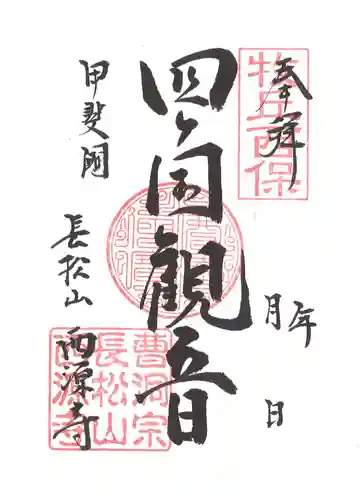 奉拝
牧丘西保
四ケ国観音
年
月
日
甲斐國
長松山
西源寺
曹洞宗
長松山
西源寺